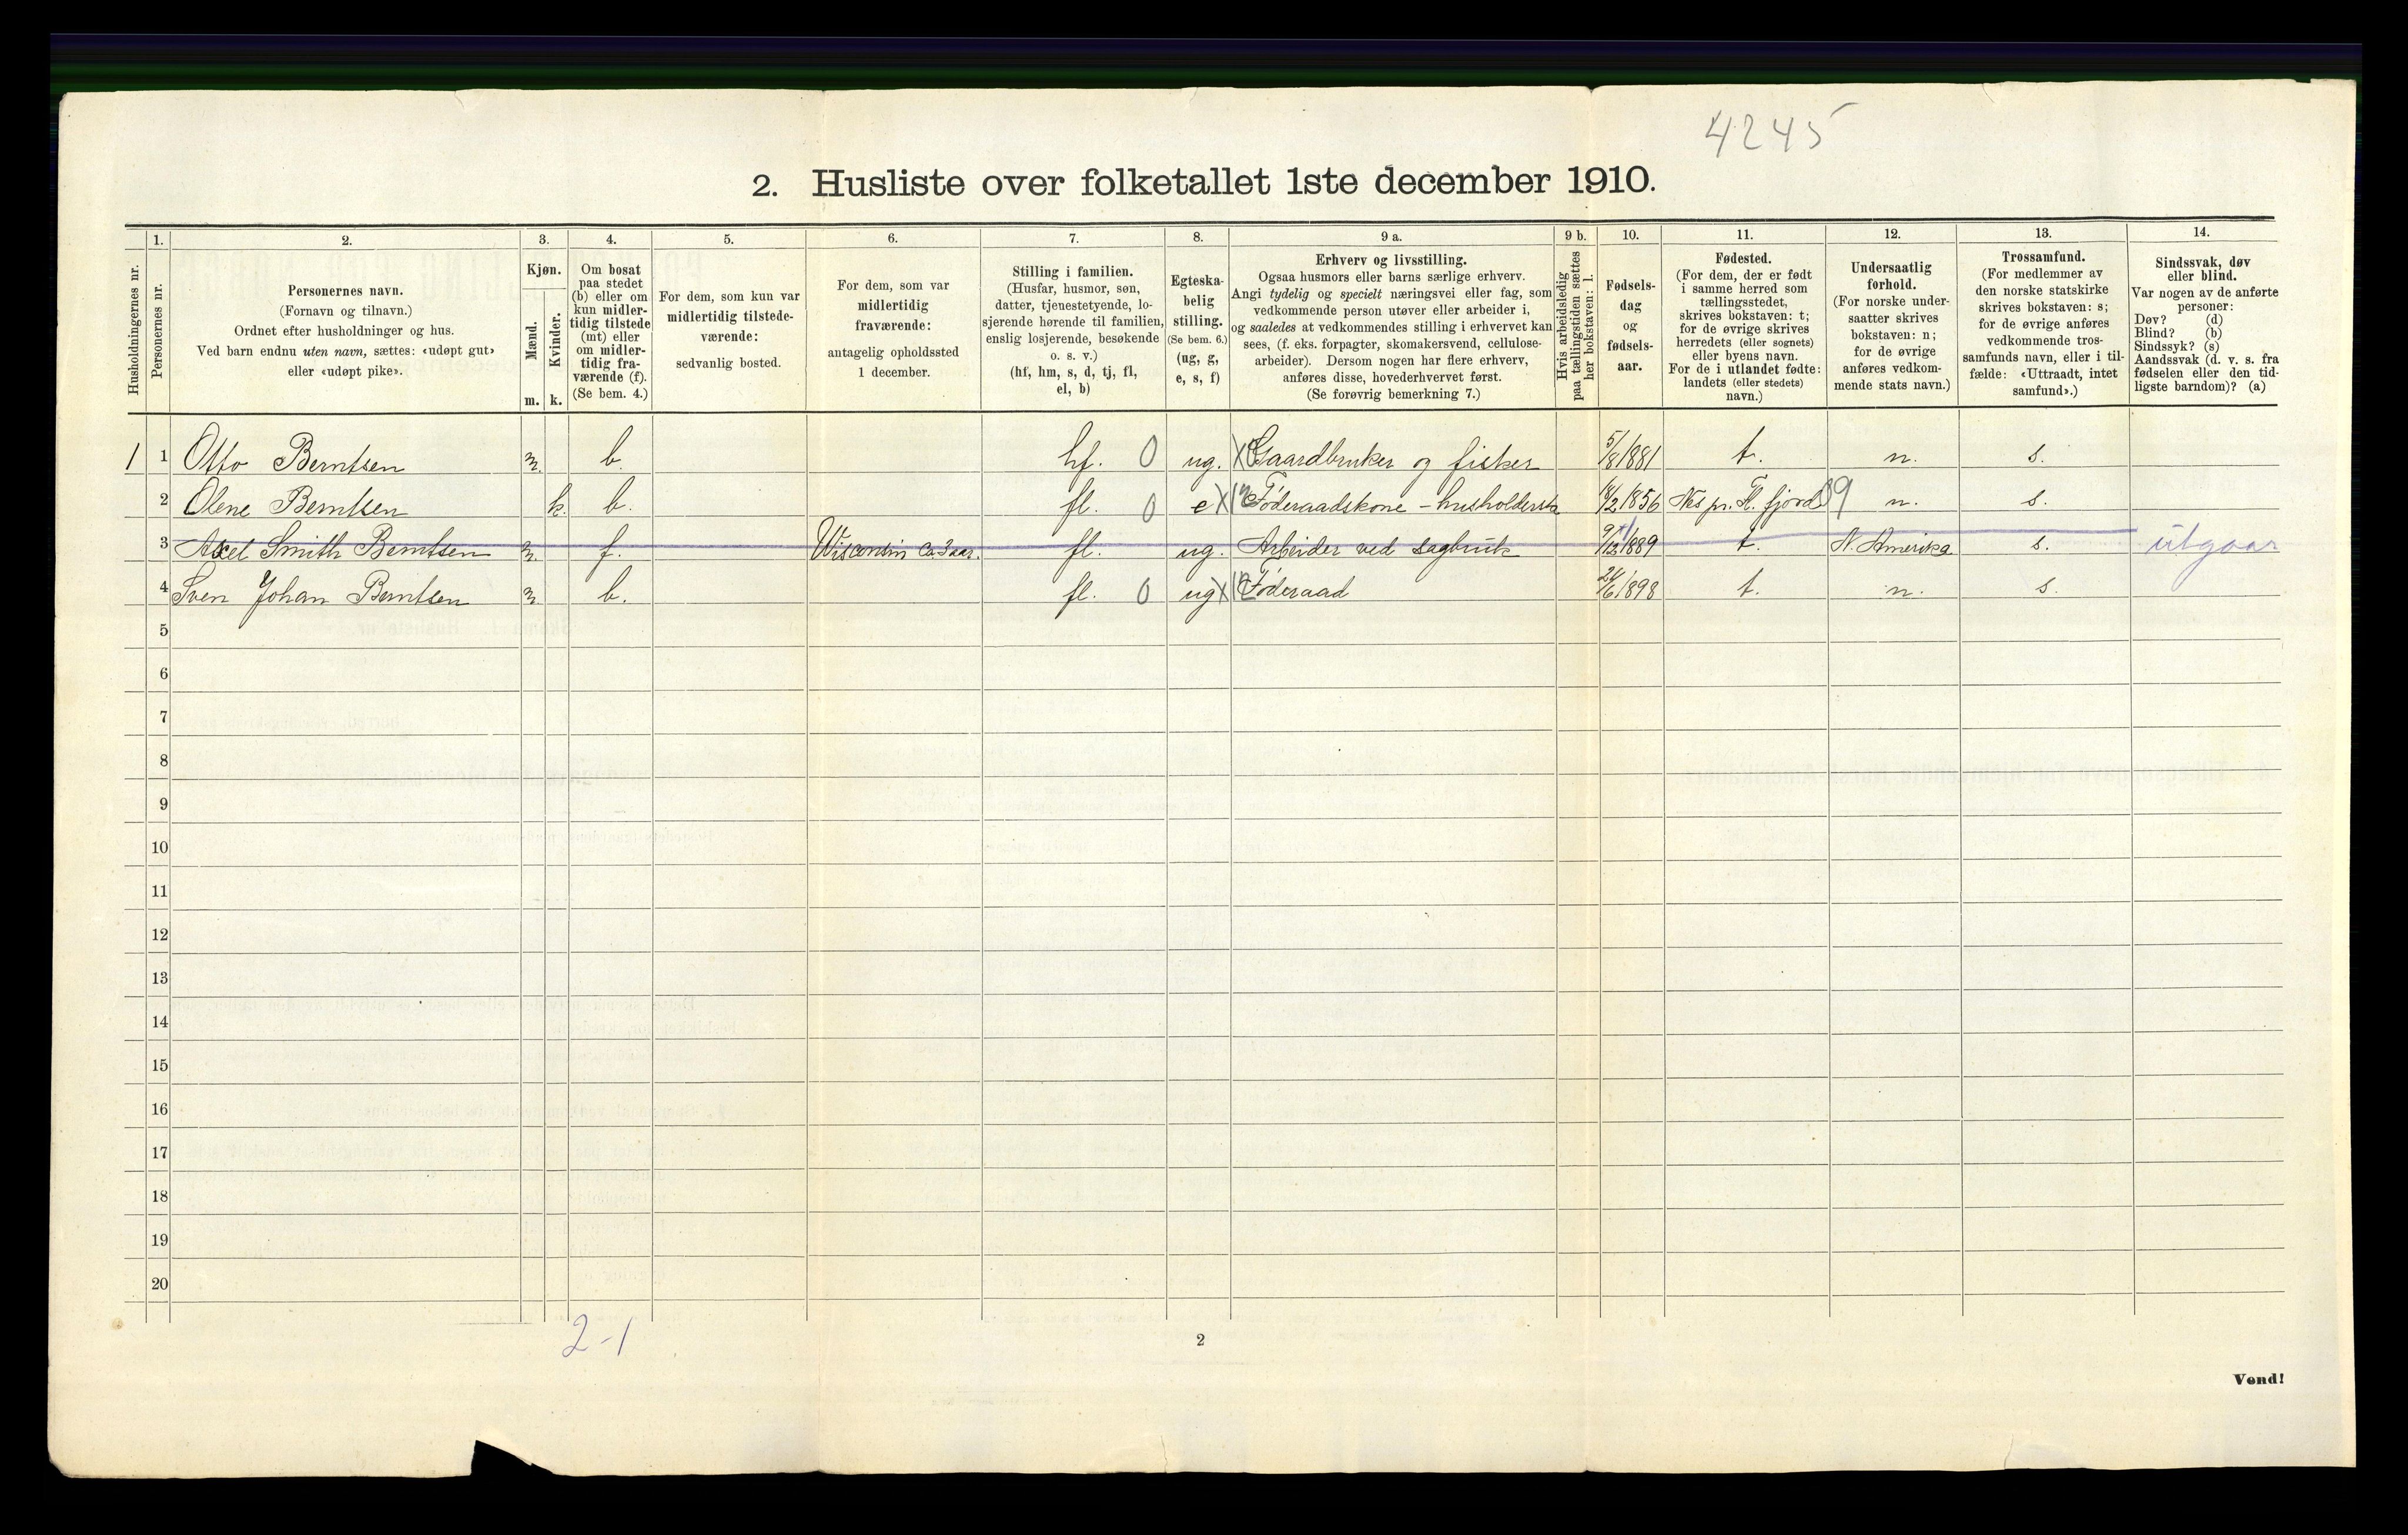 4245
2. Husliste over folketallet 1ste december 1910.
Husholdningernes nr.
1.
Personernes nr.
2.
Personernes navn.
(Fornavn og tilnavn.)
Ordnet efter husholdninger og hus.
Ved barn endnu uten navn, sættes: «udøpt gut»
eller «udøpt pike».
3.
Kjøn.
Mænd.
Kvinder.
m. k.
4.
Om bosat
paa stedet
(b) eller om
kun midler-
tidig tilstede
(mt) eller
om midler-
tidig fra-
værende (f).
(Se bem. 4.)
5.
For dem, som kun var
midlertidig tilstede-
værende:
sedvanlig bosted.
6.
For dem, som var
midlertidig
fraværende:
antagelig opholdssted
1 december.
7.
Stilling i familien.
(Husfar, husmor, søn,
datter, tjenestetyende, lo-
sjerende hørende til familien,
enslig losjerende, besøkende
o. s. v.)
(hf, hm, s, d, tj, fl,
el, b)
8.
Egteska-
belig
stilling.
(Se bem. 6.)
(ug, g,
e, s, f)
9 a.
Erhverv og livsstilling.
Ogsaa husmors eller barns særlige erhverv.
Angi tydelig og specielt næringsvei eller fag, som
vedkommende person utøver eller arbeider i,
og saaledes at vedkommendes stilling i erhvervet kan
sees, (f. eks. forpagter, skomakersvend, cellulose-
arbeider). Dersom nogen har flere erhverv,
anføres disse, hovederhvervet først.
(Se forøvrig bemerkning 7.)
9 b.
Hvis arbeidsledig
paa tællingstiden sættes
her bokstaven: l.
10.
Fødsels-
dag
og
fødsels-
aar.
11.
Fødested.
(For dem, der er født
i samme herred som
tællingsstedet,
skrives bokstaven: t;
for de øvrige skrives
herredets (eller sognets)
eller byens navn.
For de i utlandet fødte:
landets (eller stedets)
navn.)
12.
Undersaatlig
forhold.
(For norske under-
saatter skrives
bokstaven: n;
for de øvrige
anføres vedkom-
mende stats navn.)
13.
Trossamfund.
(For medlemmer av
den norske statskirke
skrives bokstaven: s;
for de øvrige anføres
vedkommende tros-
samfunds navn, eller i til-
fælde: «Uttraadt, intet
samfund».)
14.
Sindssvak, døv
eller blind.
Var nogen av de anførte
personer:
Døv? (d)
Blind? (b)
Sindssyk? (s)
Aandssvak (d. v. s. fra
fødselen eller den tid-
ligste barndom)? (a)
1 1 Otto Berntsen m. b. hf. 0 ug. X Gaardbruker og fisker 5/8 1881 t. n. s.
2 Olene Berntsen k. b. fl. 0 e X Føderaadskone - husholderske 1856 Nes pr. Fl. fjord 39 n. s.
3 Axel Smith Berntsen m. f. Wisconsin ca. 3 aar. fl. ug. Arbeider ved sagbruk 9/12 1889 t. N. Amerika s. utgaar
4 Sven Johan Berntsen m. b. fl. 0 ug X Føderaad 24/6 1898 t. n. s.
5
6
7
8
9
10
11
12
13
14
15
16
17
18
19
20
2-1
2
Vend!